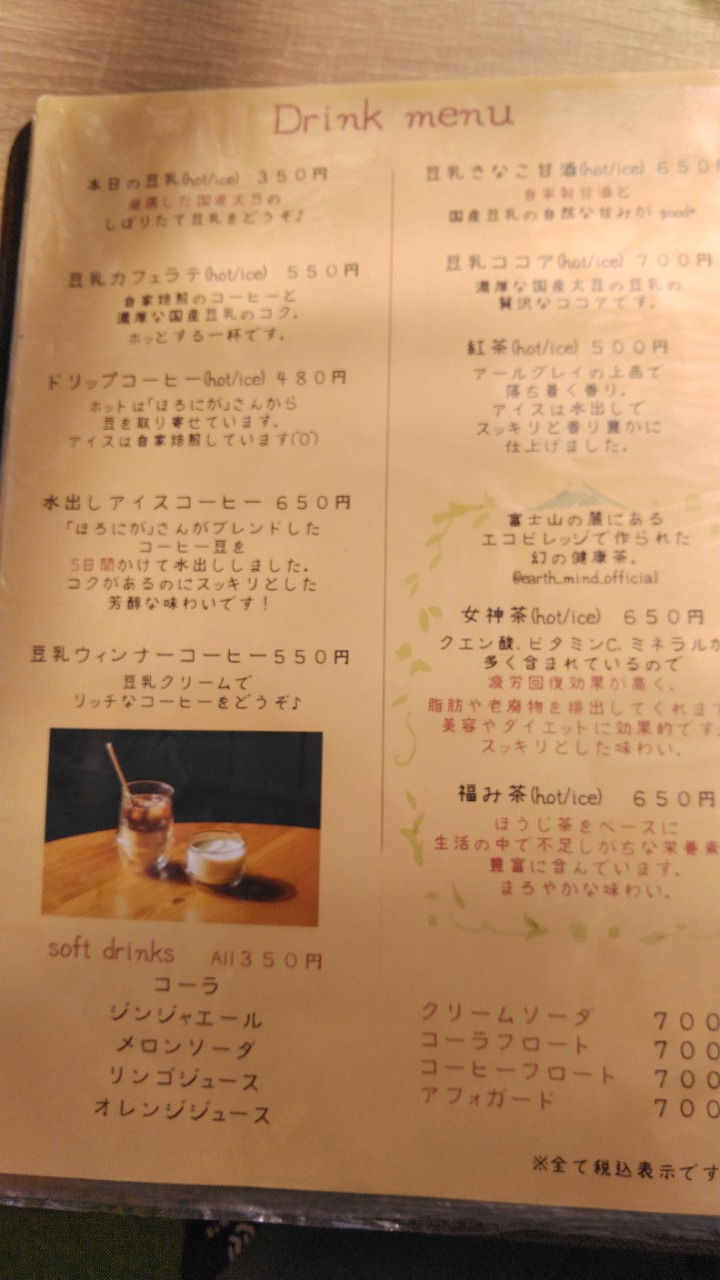 Drink menu
本日の豆乳(hot/ice) 350円
厳選した国産大豆の
しぼりたて豆乳をどうぞ♪
豆乳カフェラテ(hot/ice) 550円
自家焙煎のコーヒーと
濃厚な国産豆乳のコク。
ホッとする一杯です。
ドリップコーヒー(hot/ice) 480円
ホットは「ほろにが」さんから
豆を取り寄せています。
アイスは自家焙煎しています(^0^)
水出しアイスコーヒー 650円
「ほろにが」さんがブレンドした
コーヒー豆を
5日間かけて水出ししました。
コクがあるのにスッキリとした
芳醇な味わいです！
豆乳ウィンナーコーヒー550円
豆乳クリームで
リッチなコーヒーをどうぞ♪
soft drinks All350円
コーラ
ジンジャエール
メロンソーダ
リンゴジュース
オレンジジュース
豆乳きなこ甘酒(hot/ice) 650円
自家製甘酒と
国産豆乳の自然な甘みが good*
豆乳ココア(hot/ice) 700円
濃厚な国産大豆の豆乳の
贅沢なココアです。
紅茶(hot/ice) 500円
アールグレイの上品で
落ち着く香り。
アイスは水出しで
スッキリと香り豊かに
仕上げました。
富士山の麓にある
エコビレッジで作られた
幻の健康茶。
@earth_mind_official
女神茶(hot/ice) 650円
クエン酸、ビタミンC、ミネラルが
多く含まれているので
疲労回復効果が高く、
脂肪や老廃物を排出してくれます
美容やダイエットに効果的です。
スッキリとした味わい。
福み茶(hot/ice) 650円
ほうじ茶をベースに
生活の中で不足しがちな栄養素
豊富に含んでいます。
まろやかな味わい。
クリームソーダ 700
コーラフロート 700
コーヒーフロート 700
アフォガード 700
※全て税込表示です